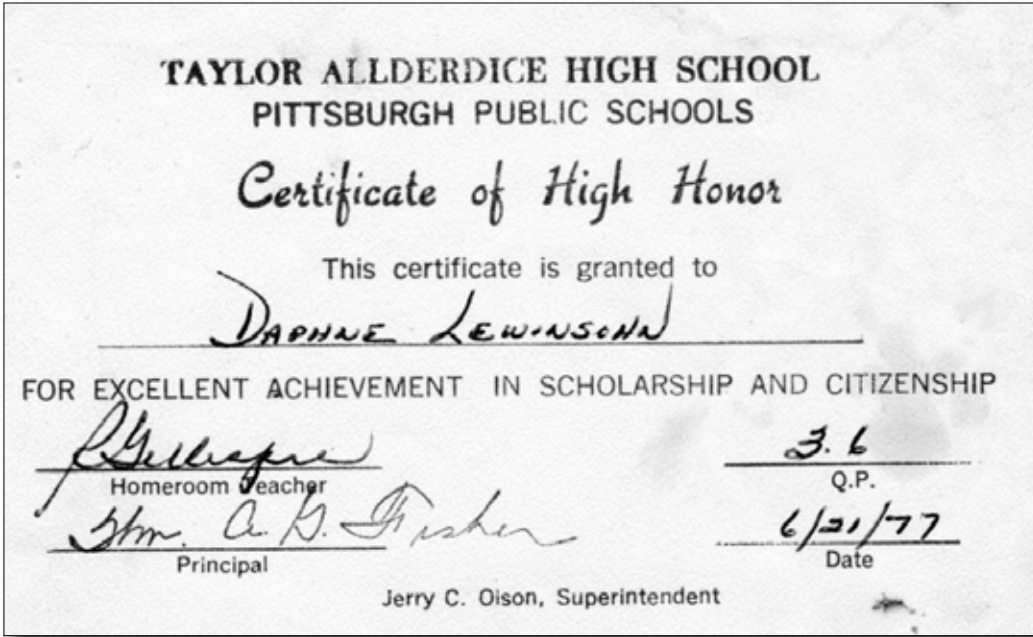 TAYLOR ALLDERDICE HIGH SCHOOL
PITTSBURGH PUBLIC SCHOOLS
Certificate of High Honor
This certificate is granted to
DAPHNE LEWINSOHN
FOR EXCELLENT ACHIEVEMENT IN SCHOLARSHIP AND CITIZENSHIP
P Gillespie 3.6
Homeroom Teacher Q.P.
Wm. A. G. Fisher 6/21/77
Principal Date
Jerry C. Olson, Superintendent